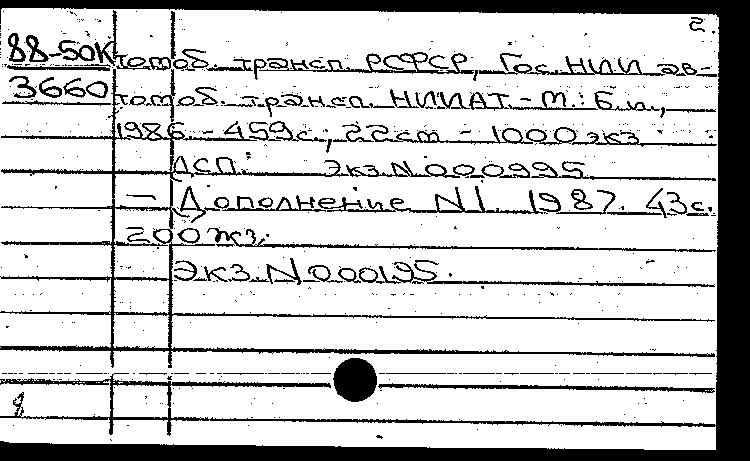 2.
88-50К томоб. трансп. РСФСР, Гос. НИИ ав-
3660 томоб. трансп. НИИАТ. - М.: Б.и.,
1986. - 459с.; 22см - 1000экз.
ДСП. Экз. N000995.
— Дополнение N1. 1987. 43с.
200экз.
Экз. N000195.
8